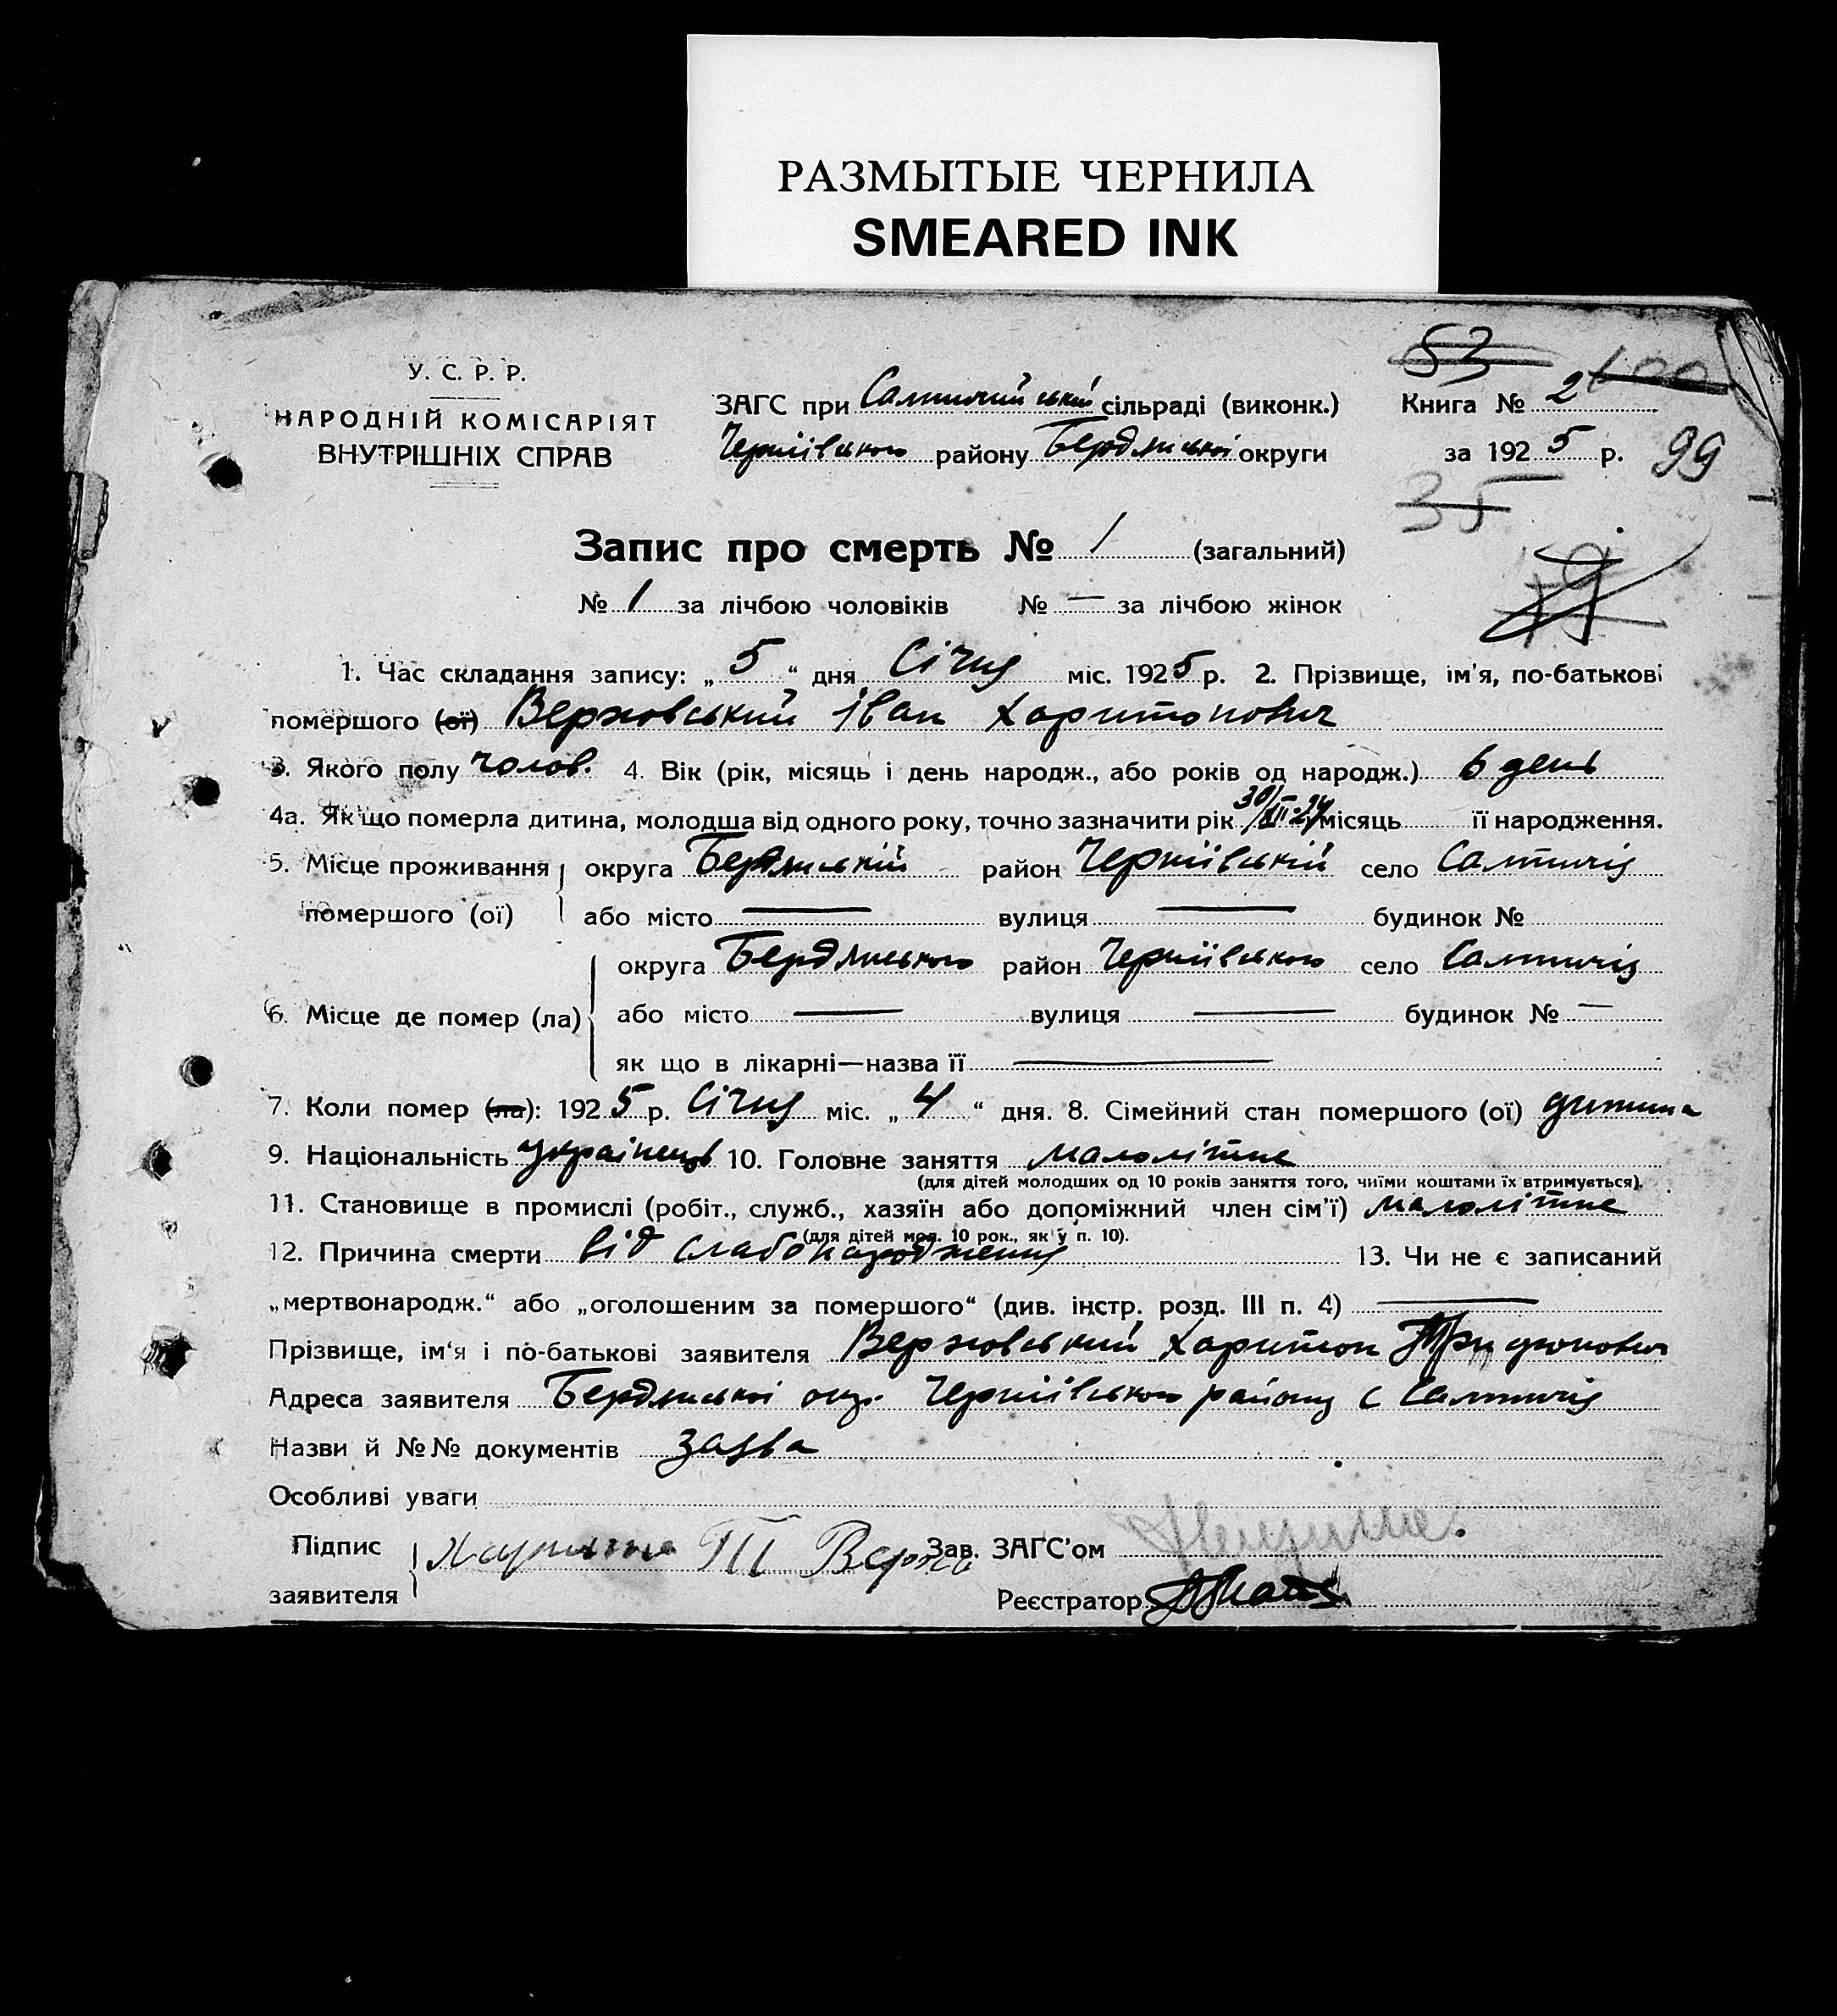 РАЗМЫТЫЕ ЧЕРНИЛА
SMEARED INK
53
У. С. Р. Р.
НАРОДНІЙ КОМІСАРІЯТ
ВНУТРІШНІХ СПРАВ
ЗАГС при Салтичий ській сільраді (виконк.)
Чернііівського району Бердянської округи
Книга № 2 100
за 1925 р. 99
35
Запис про смерть № 1 (загальний)
№ 1 за лічбою чоловіків № — за лічбою жінок
1. Час складання запису: „ 5 “ дня Січня міс. 1925 р. 2. Прізвище, ім'я, по-батькові
помершого (ої) Верховський Іван Харитонович
3. Якого полу чолов. 4. Вік (рік, місяць і день народж., або років од народж.) 6 день
4а. Як що померла дитина, молодша від одного року, точно зазначити рік 30/XII-24 місяць її народження.
5. Місце проживання округа Бердянській район Черніівській село Салтичія
помершого (ої) або місто — вулиця — будинок №
округа Бердянського район Черніівського село Салтичія
6. Місце де помер (ла) або місто — вулиця — будинок № —
як що в лікарні—назва її —
7. Коли помер (ла): 1925 р. Січня міс. „ 4 “ дня. 8. Сімейний стан помершого (ої) дитина
9. Національність українець 10. Головне заняття малолітне
(для дітей молодших од 10 років заняття того, чиїми коштами їх втримується).
11. Становище в промислі (робіт., служб., хазяїн або допоміжний член сім'ї) малолітне
(для дітей мол. 10 рок., як у п. 10).
12. Причина смерти від слабонародження 13. Чи не є записаний
„мертвонародж.“ або „оголошеним за помершого“ (див. інстр. розд. III п. 4) —
Прізвище, ім'я і по-батькові заявителя Верховський Харитон Трифонович
Адреса заявителя Бердянської окр. Черніівського району с Салтичія
Назви й №№ документів заява
Особливі уваги
Підпис заявителя Харитон Т Верхов
Зав. ЗАГС'ом
Реєстратор